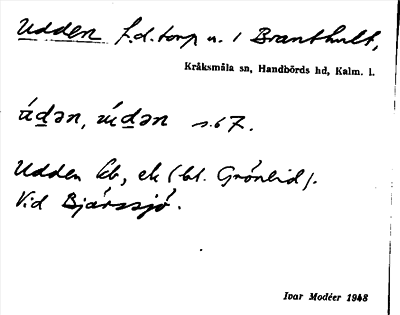 Udden f.d. torp u. / Branthult,
Kråksmåla sn, Handbörds hd, Kalm. l.
s. 67.
Udden kb, ek (bl. Grönlid).
Vid Bjärssjö.
Ivar Modéer 1948